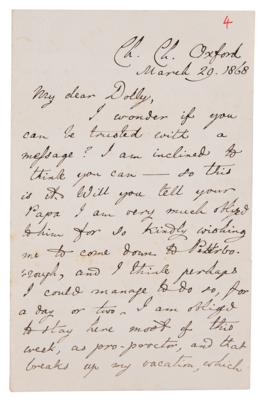 4
Ch. Ch. Oxford
March 20. 1868
My dear Dolly,
I wonder if you
can be trusted with a
message? I am inclined to
think you can — so this
is it. Will you tell your
Papa I am very much obliged
to him for so kindly wishing
me to come down to
-rough, and I think perhaps
I could manage to do so, for
a day or two. I am obliged
to stay here most of this
week, as pro-proctor, and that
breaks up my vacation, which